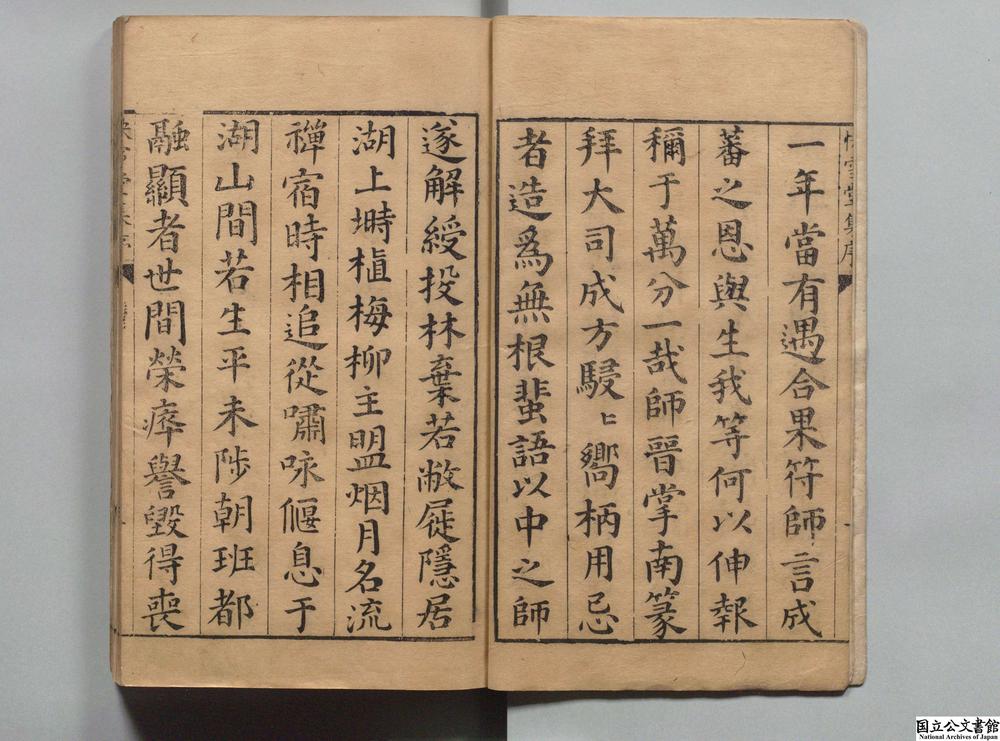 快雪堂集序
一年當有遇合果符師言成
蕃之恩與生我等何以伸報
稱于萬分一哉師晉掌南篆
拜大司成方駸ヒ嚮柄用忌
者造爲無根蜚語以中之師
遂解綬投林棄若敝屣隱居
湖上塒植梅柳主盟烟月名流
禪宿時相追從嘯咏偃息于
湖山間若生平未陟朝班都
融顯者世間榮瘁譽毀得喪
国立公文書館
National Archives of Japan